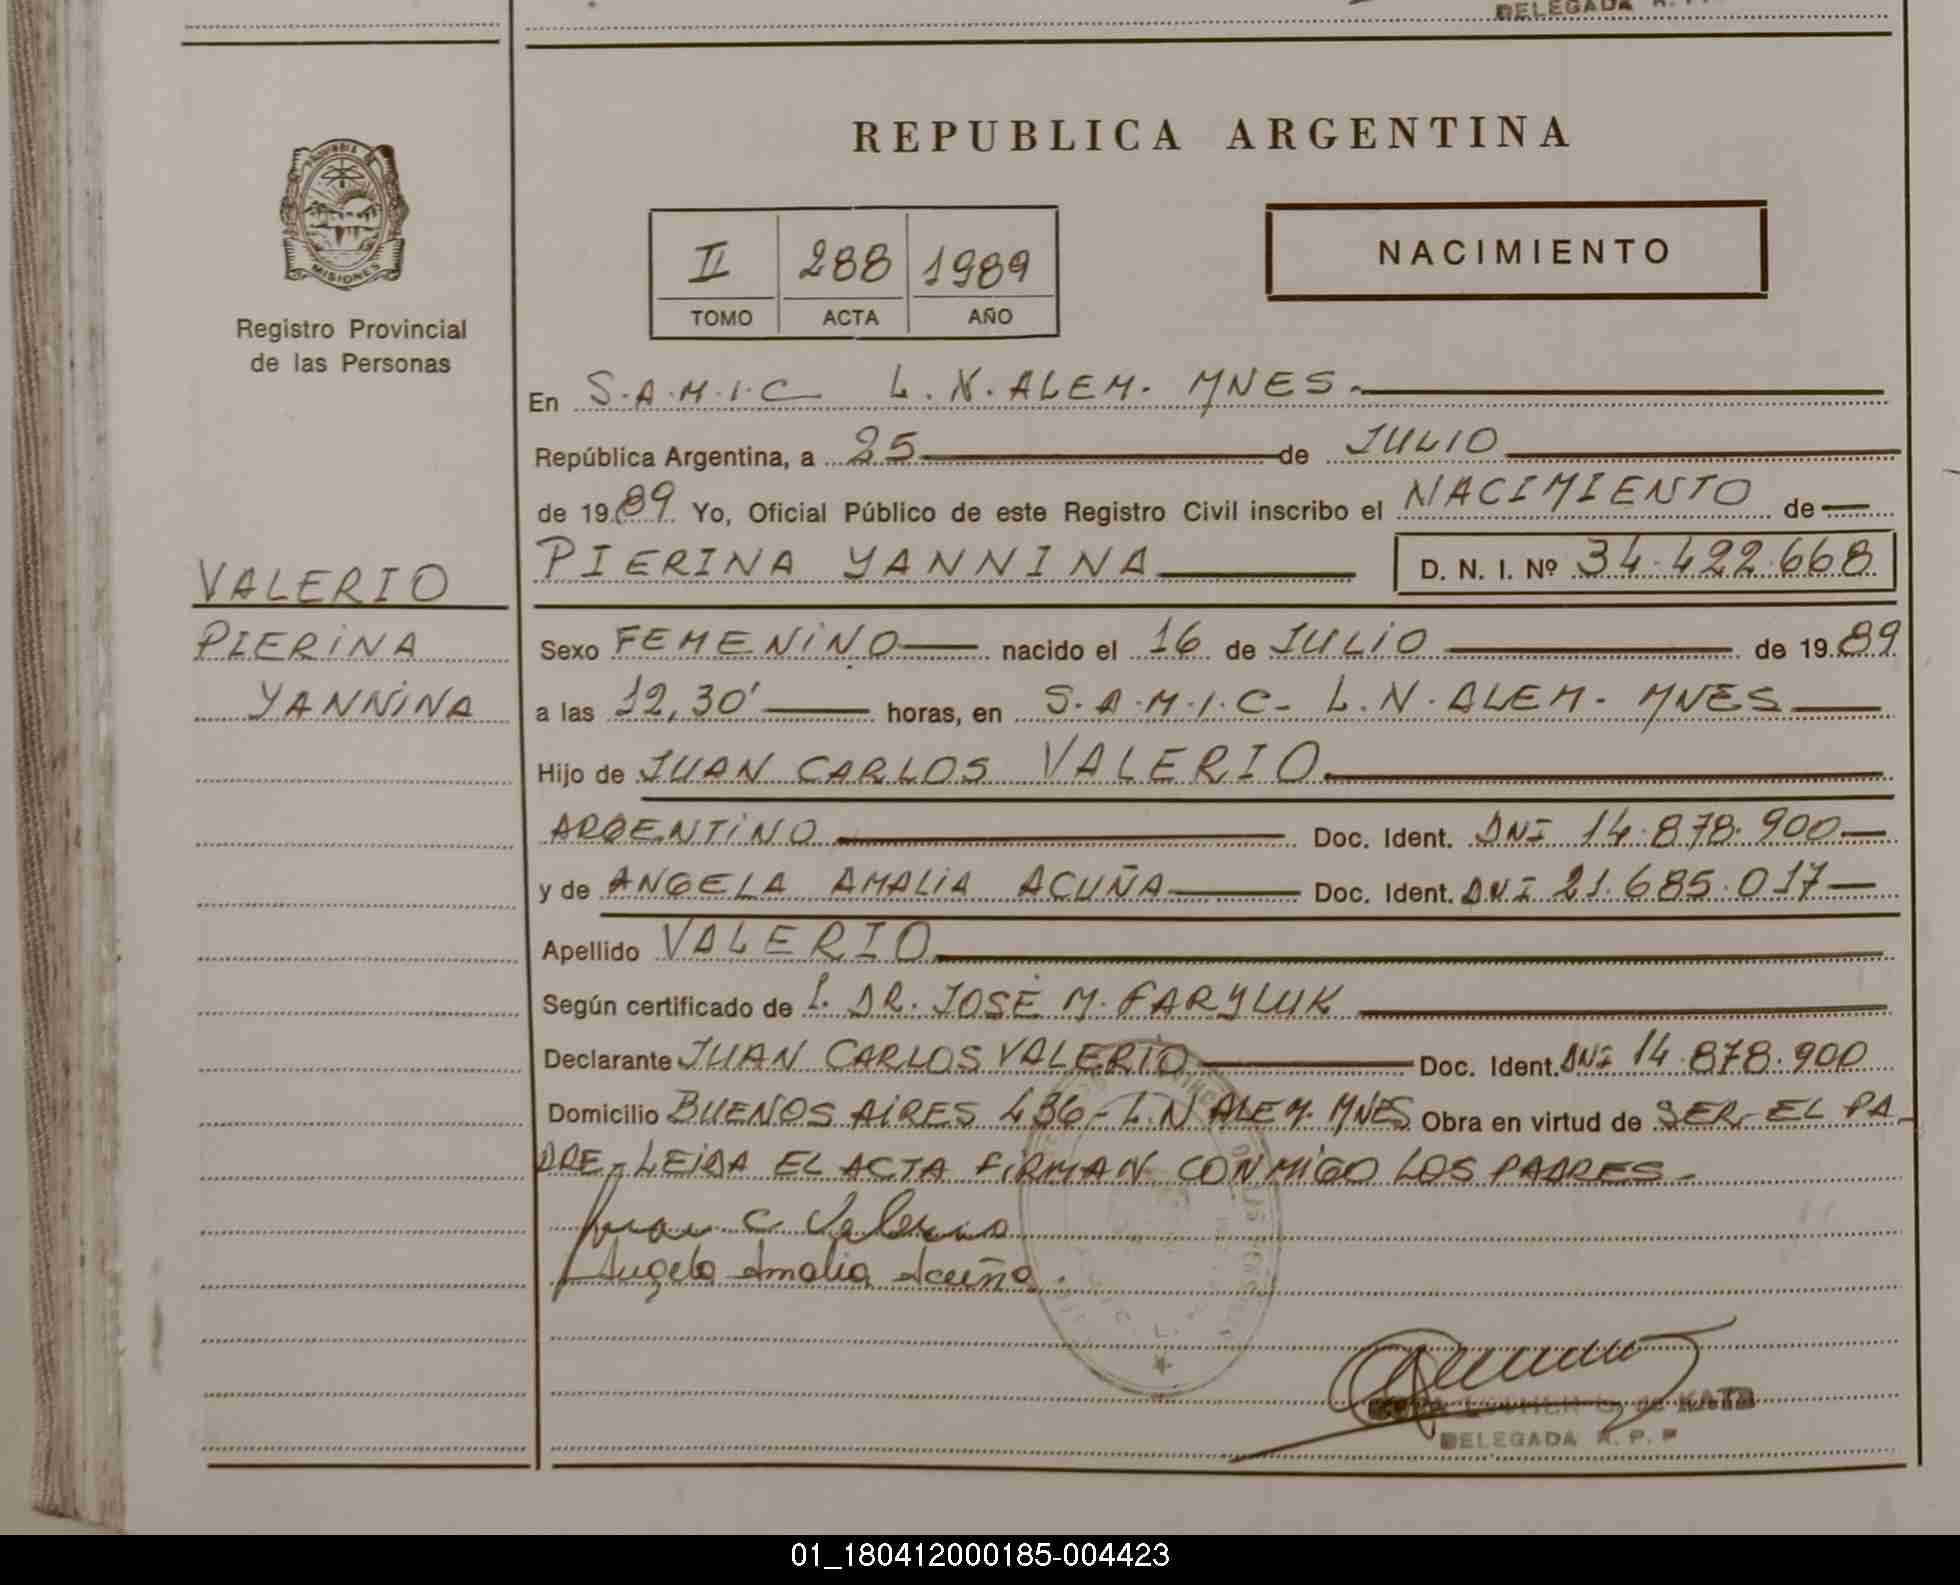 DELEGADA R. P. P.
REPUBLICA ARGENTINA
PROVINCIA DE
MISIONES
Registro Provincial
de las Personas
II 288 1989
TOMO ACTA AÑO
NACIMIENTO
En S.A.M.I.C L.N.ALEM. MNES.
República Argentina, a 25 de JULIO
de 1989 Yo, Oficial Público de este Registro Civil inscribo el NACIMIENTO de
VALERIO
PIERINA
YANNINA
PIERINA YANNINA D. N. I. Nº 34.422.668
Sexo FEMENINO nacido el 16 de JULIO de 1989
a las 12,30' horas, en S.A.M.I.C- L.N.ALEM. MNES
Hijo de JUAN CARLOS VALERIO
ARGENTINO Doc. Ident. DNI 14.878.900
y de ANGELA AMALIA ACUÑA Doc. Ident. DNI 21.685.017
Apellido VALERIO
Según certificado de DR. JOSÉ M. FARYLUK
Declarante JUAN CARLOS VALERIO Doc. Ident. DNI 14.878.900
Domicilio BUENOS AIRES 436-L.N ALEM. MNES Obra en virtud de SER EL PA-
DRE-LEIDA EL ACTA FIRMAN CONMIGO LOS PADRES-
Juan C Valerio
Angela Amalia Acuña.
DELEGADA R. P. P
01_180412000185-004423